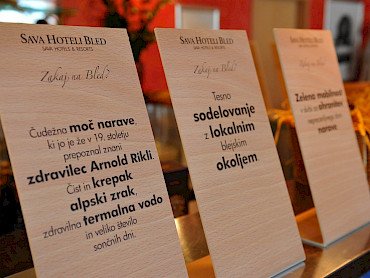 SAVA HOTELI BLED
SAVA HOTELS & RESORTS
Zakaj na Bled?
Čudežna moč narave,
ki jo je že v 19. stoletju
prepoznal znani
zdravilec Arnold Rikli.
Čist in krepak
alpski zrak,
zdravilna termalna voda
in veliko število
sončnih dni.
SAVA HOTELI BLED
SAVA HOTELS & RESORTS
Zakaj na Bled?
Tesno
sodelovanje
z lokalnim
blejskim
okoljem
SAVA HOTELI BLED
SAVA HOTELS & RESORTS
Zakaj na Bled?
Zelena mobilnost
ohranitev
narave